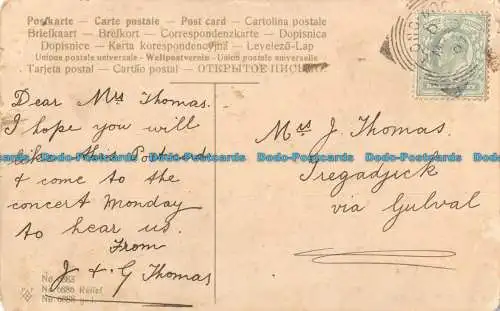 Postkarte — Carte postale — Post card — Cartolina postale
Briefkaart — Brefkort — Correspondenzkarte — Dopisnica
Dopisnice — Karta korespondencyjna — Levelező-Lap
Unione postale universale — Weltpostverein — Union postale universelle
Tarjeta postal — Cartão postal — ОТКРЫТОЕ ПИСЬМО
Dear Mrs Thomas.
I hope you will
like this Postcard
& come to the
concert Monday
to hear us.
From
J & G Thomas
No. 6886 Relief
Mrs J. Thomas.
Tregadjick
via Gulval
Dodo-Postcards Dodo-Postcards Dodo-Postcards Dodo-Postcards